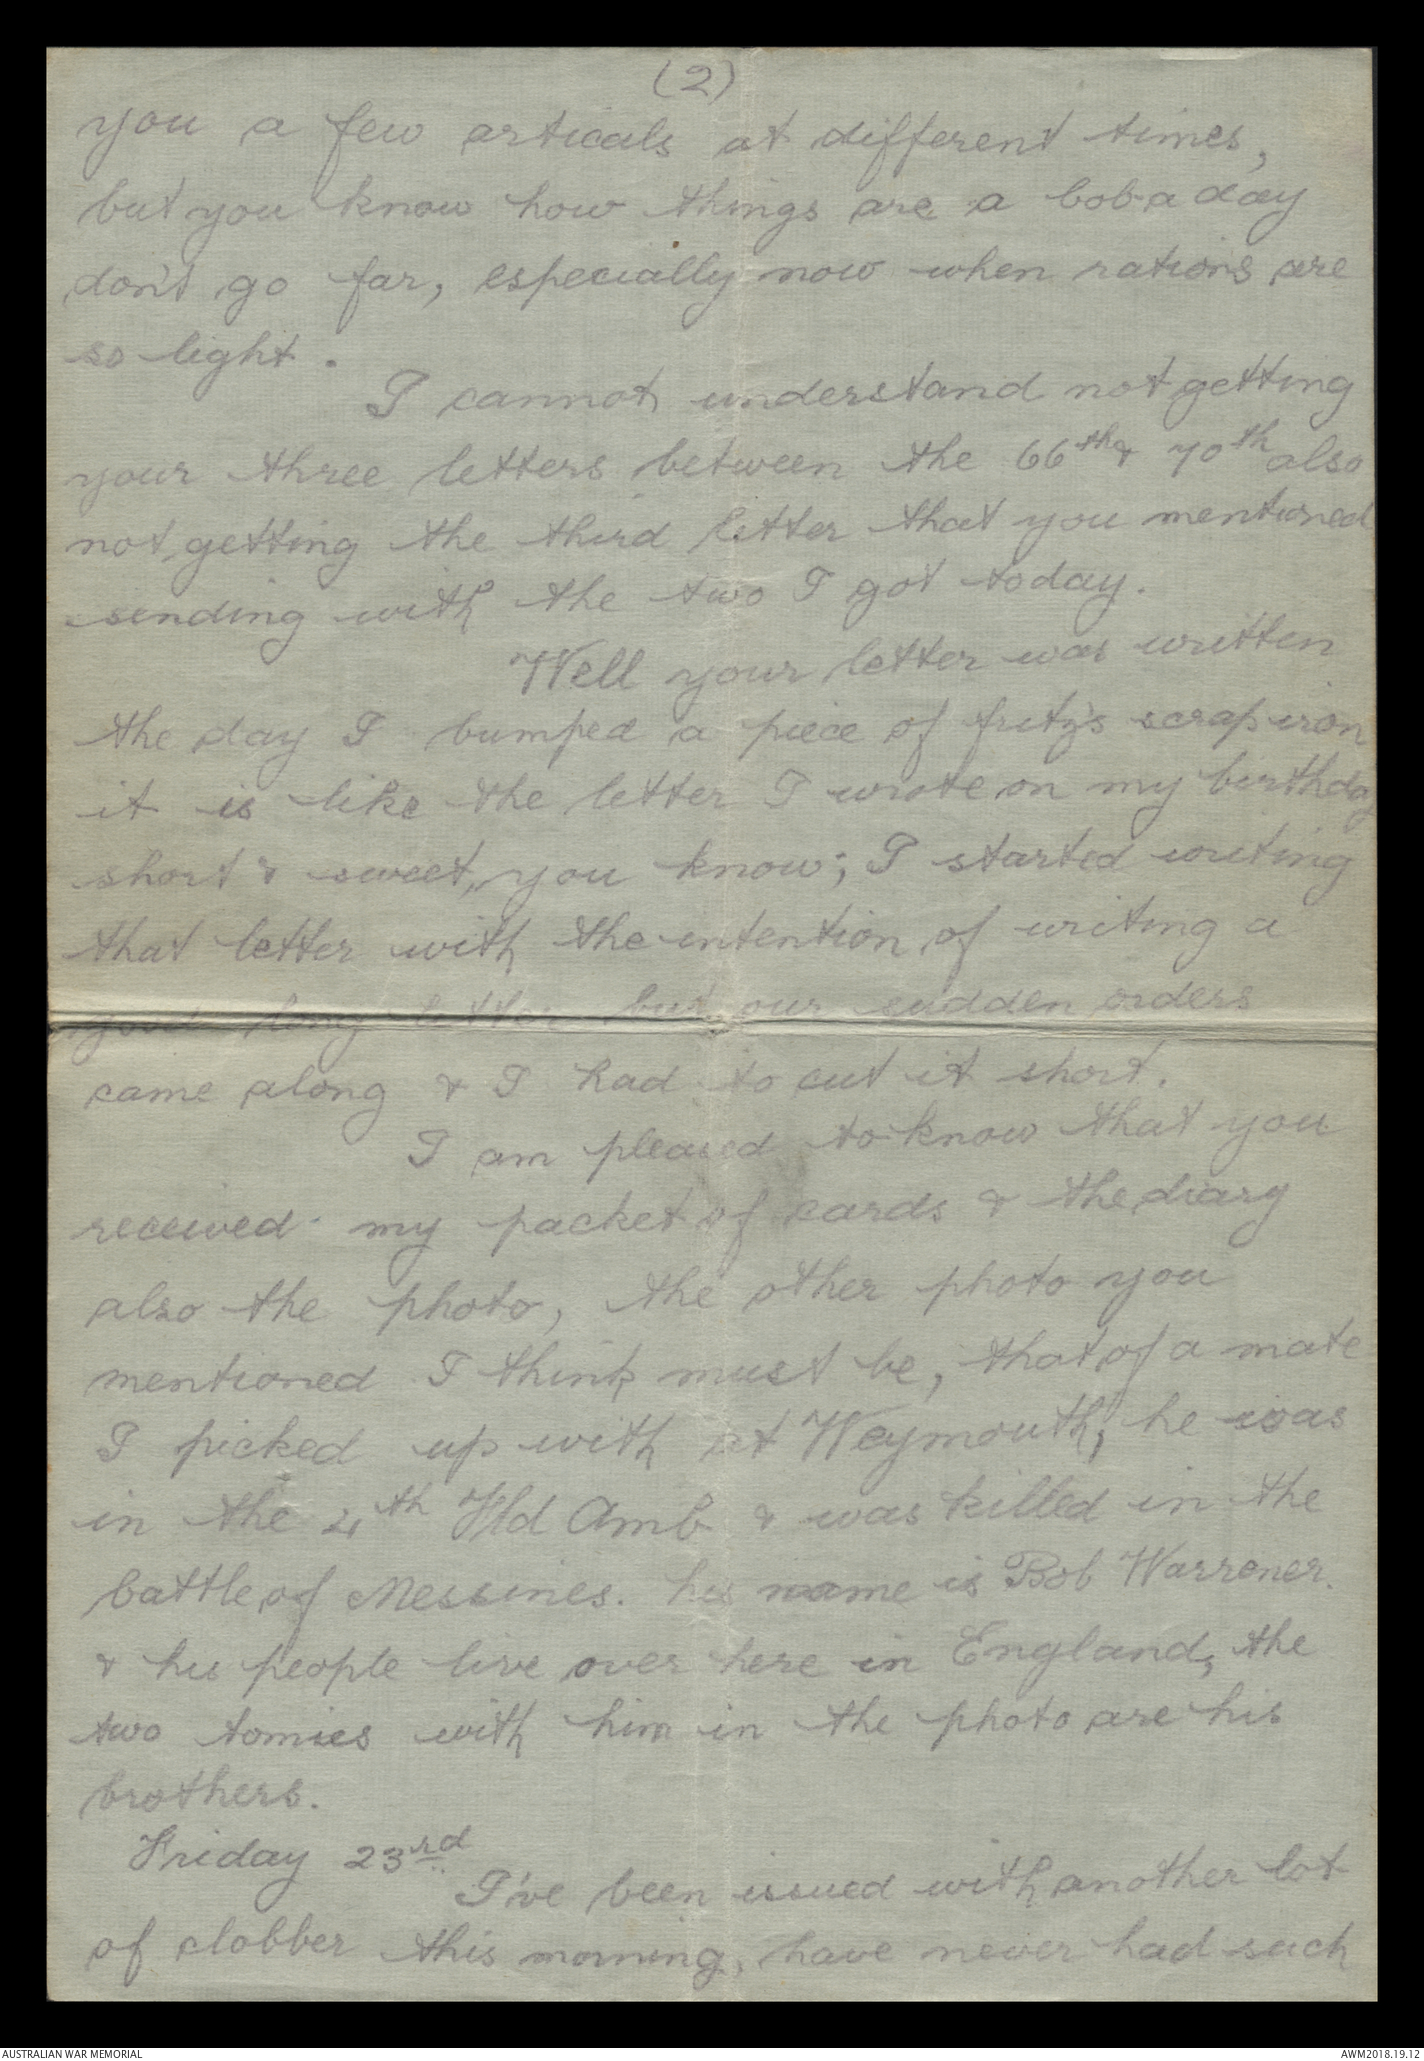 (2)
you a few articals at different times,
but you know how things are a bob a day
don't go far, especially now when rations are
so light.
I cannot understand not getting
your three letters between the 66th & 70th also
not getting the third letter that you mentioned
sending with the two I got today.
Well your letter was written
the day I bumped a piece of fritz's scrap iron
it is like the letter I wrote on my birthday
short & sweet, you know; I started writing
that letter with the intention of writing a
good long letter but our sudden orders
came along & I had to cut it short.
I am pleased to know that you
received my packet of cards & the diary
also the photo, the other photo you
mentioned I think must be, that of a mate
I picked up with at Weymouth, he was
in the 4th Fld Amb & was killed in the
battle of Messines. his name is Bob Warrener.
& his people live over here in England, the
two tomies with him in the photo are his
brothers.
Friday 23rd
I've been issued with another lot
of clobber this morning, have never had such
AUSTRALIAN WAR MEMORIAL
AWM2018.19.12